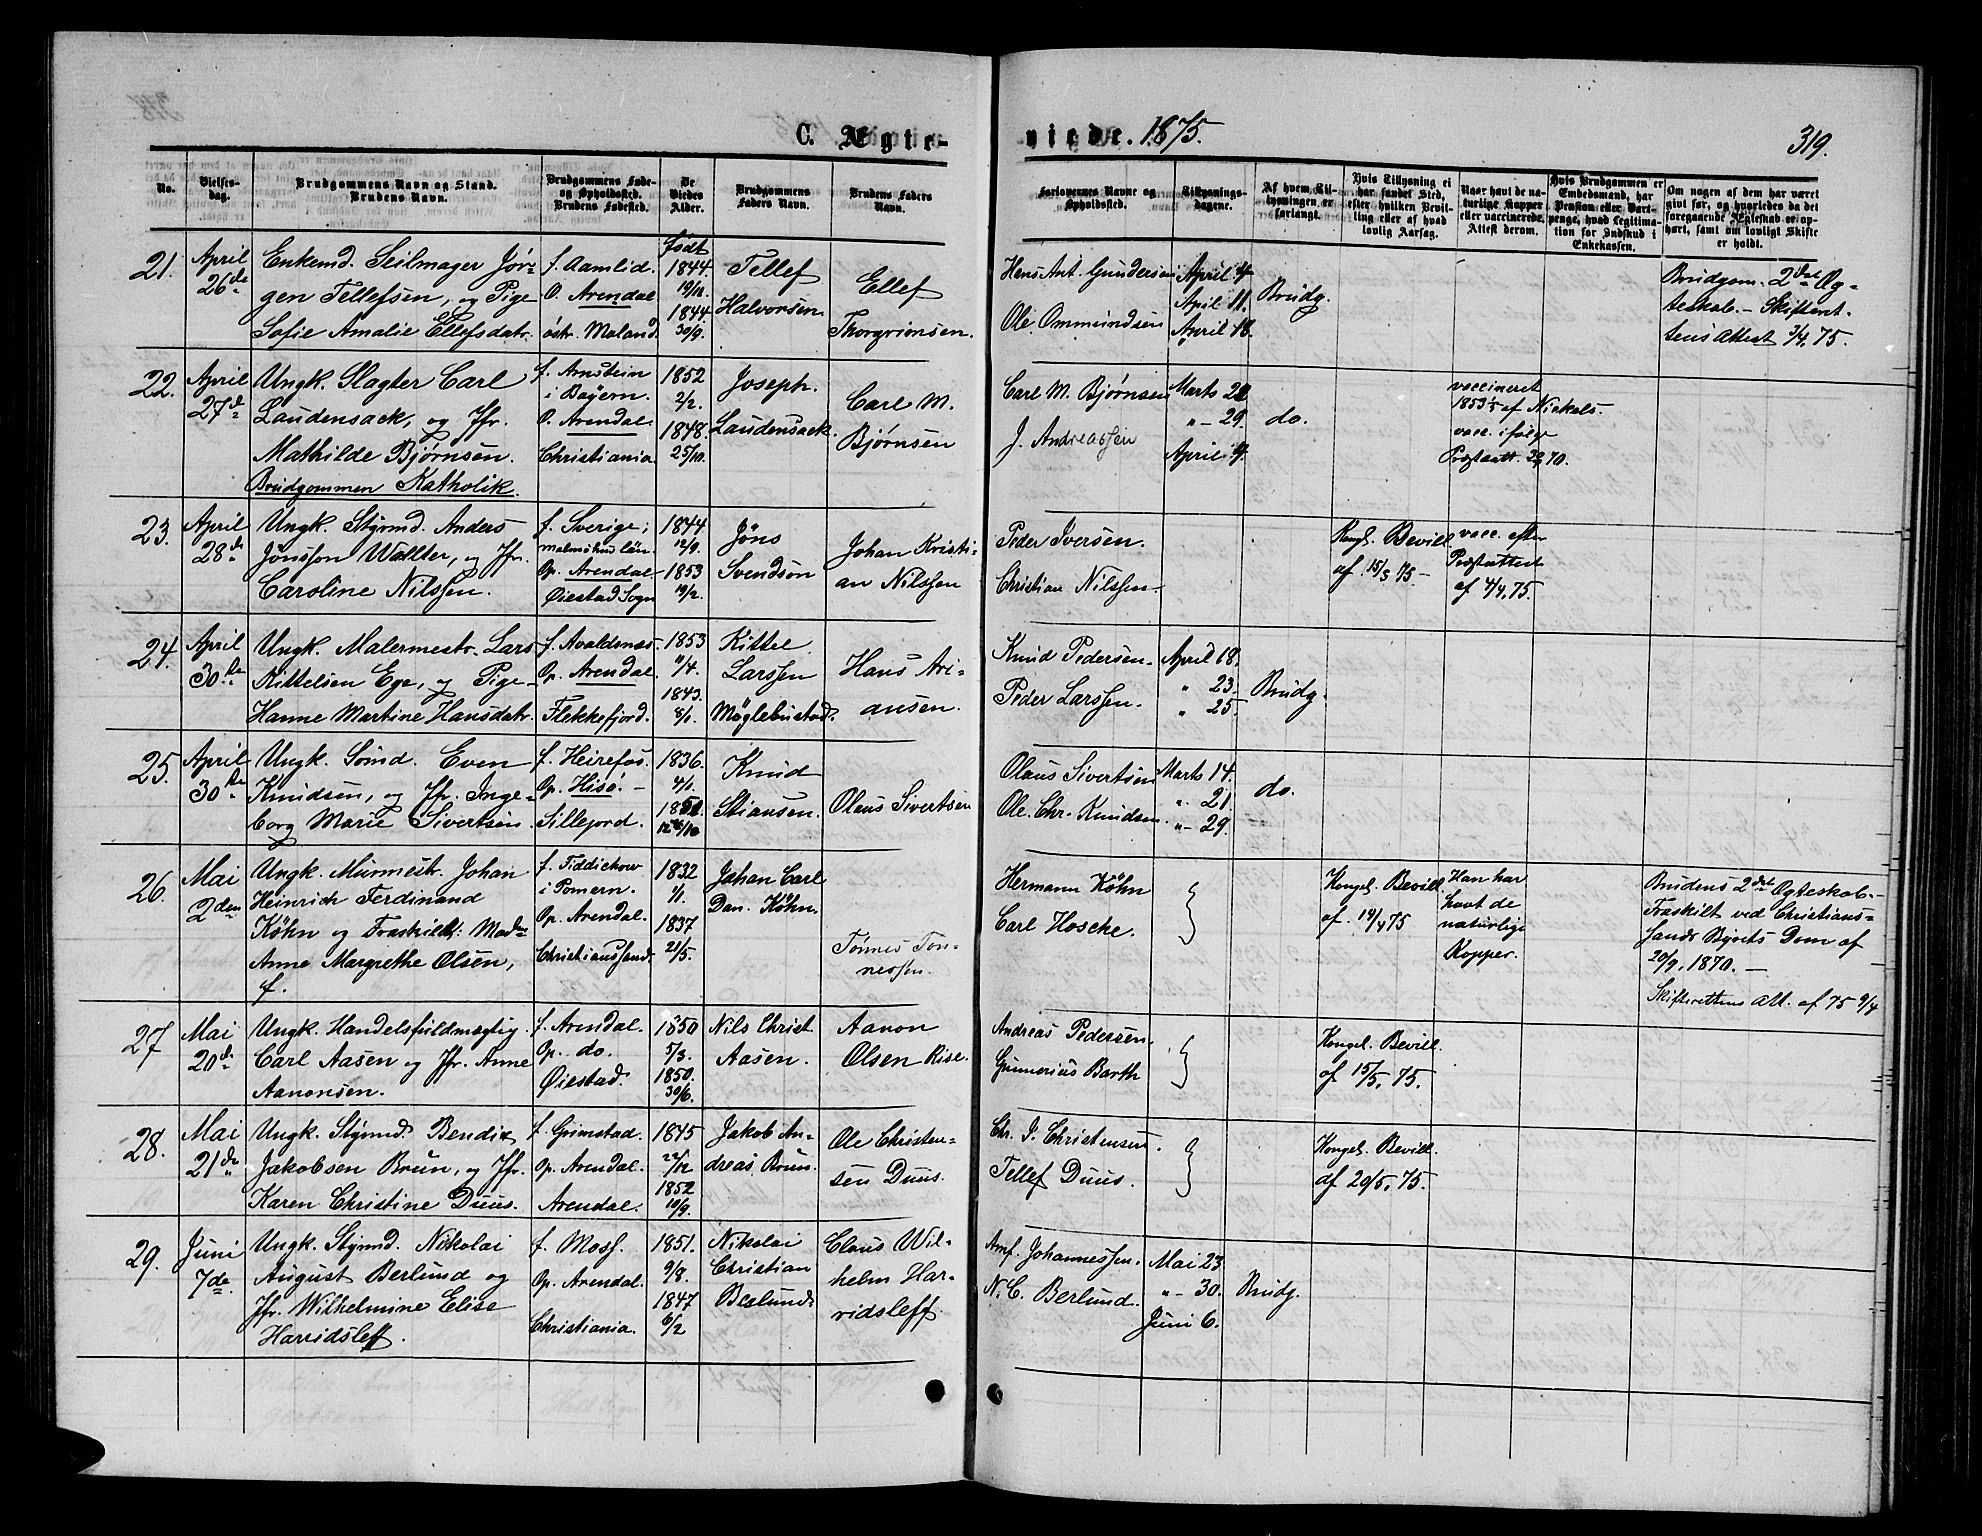 C. Ægte-
viede. 1875.
319.
No.
Vielses-
dag.
Brudgommens Navn og Stand.
Brudens Navn.
Brudgommens Føde-
og Opholdssted.
Brudens Fødested.
De
Viedes
Alder.
Brudgommens
Faders Navn.
Brudens Faders
Navn.
Forlovernes Navne og
Opholdssted.
Tillysnings-
dagene.
Af hvem Til-
lysningen er
forlangt.
Hvis Tillysning ei
har fundet Sted,
efter hvilken Bevil-
ling eller af hvad
lovlig Aarsag.
Naar havt de na-
turlige Kopper
eller vaccinerede.
Attest derom.
Hvis Brudgommen er
Embedsmand, har
Pension eller Vart-
penge, hvad Legitima-
tion for Indskud i
Enkekassen.
Om nogen af dem har været
givt før, og hvorledes da det
foregaaende Ægteskab er op-
hørt, samt om lovligt Skifte
er holdt.
21.
April
26de
Enkemd. Seilmager Jør-
gen Tellefsen, og Pige
Sofie Amalie Ellefsdatr.
f. Aamlid.
O. Arendal
østr. Moland.
Født
1844
19/11.
1844
30/9.
Tellef
Halvorsen
Ellef
Thorgrimsen.
Hans Ant. Gundersen
Ole Ommundsen
April 4
April 11.
April 18.
Brudg.
Brudgom. 2det Æg-
teskab. - Skifteret-
tens Attest 3/4, 75.
22.
April
27de
Ungk. Slagter Carl
Laudensack, og Jfr.
Mathilde Bjørnsen.
Brudgommen Katholik.
f. Arnstein
i Bayern.
O. Arendal.
Christiania.
1852
2/2.
1848.
25/10.
Joseph.
Laudensack.
Carl M.
Bjørnsen
Carl M. Bjørnsen
J. Andreassen
Marts 21
" - 29.
April 4.
do.
vaccineret
1853 1/5 af Nickels.
vacc. ifølge
23.
April
28de
Ungk. Styrmd. Anders
Jønsson Wallter, og Jfr.
Caroline Nilssen.
f. Sverige;
Malmøhus län
Op. Arendal
Øiestad Sogn
1844
12/9.
1853
19/2.
Jøns
Svendson
Johan Kristi-
an Nilssen
Peder Iversen.
Christian Nilssen.
Kongl. Bevill.
af 15/3 75 -
vacc. efter
Præstattest
af 4/4, 75.
24.
April
30te
Ungk. Malermestr. Lars
Kittelsen Ege, og Pige
Hanne Martine Hansdatr.
f. Avaldsnes.
Op. Arendal.
Flekkefjord.
1853
11/4.
1843.
8/1.
Kittel
Larssen
Møglebustad.
Hans Ari-
ansen.
Knud Pedersen.
Peder Larssen.
April 18.
" 23.
" 25.
Brudg.
25.
April
30te
Ungk. Sømd. Even
Knudsen, og Jfr. Inge-
borg Marie Sivertsen.
f. Heirefos.
Op. Hisø. -
Sillejord.
1836.
4/1.
Knud
Stiansen.
Olaus Sivertsen
Olaus Sivertsen
Ole Chr. Knudsen.
Marts 14.
" 21.
" - 29.
do.
26.
Mai
2den
Ungk. Murmestr. Johan
Heinrich Ferdinand
Køhn og Fraskilt: Mad.
Anne Margrethe Olsen,
f.
f. Fiddichow
i Pomern.
Op. Arendal.
Christianssand.
1832
1/1.
1837
21/5.
Johan Carl
Dan. Køhn.
Tønnes Tøn-
nessen.
Hermann Køhn
Carl Hoscke.
Kongel. Bevill.
af. 14/4 75
Han har
havt de
naturlige
Kopper.
Brudens 2det Ægteskab. -
Fraskilt ved Christians-
sands Byrets Dom af
20/9, 1870. -
Skifterettens Att. af 75 9/4
27
Mai
20de
Ungk. Handelsfuldmægtig
Carl Aasen og Jfr. Anne
Aanonsen.
f. Arendal.
Op. do.
Øiestad.
1850
5/3.
1850.
30/6.
Nils Christ
Aasen.
Aanon
Olsen Rise.
Andreas Pedersen.
Gunnerius Barth
Kongel. Bevill.
af 15/5, 75.
28.
Mai
21de
Ungk. Styrmd. Bendix
Jakobsen Brun, og Jfr.
Karen Christine Duus.
f. Grimstad.
Op. Arendal.
Arendal.
1845
22/12
1852
10/9.
Jakob An-
dreas Brun.
Ole Christen-
sen Duus.
Chr. J. Christensen.
Tellef Duus.
Kongel. Bevill.
af 20/5, 75.
29.
Juni
7de.
Ungk. Styrmd. Nikolai
August Berlund og
Jfr. Wilhelmine Elise
Harridsleff.
f. Moss.
Op. Arendal.
Christiania.
1851.
9/8.
1847
6/2
Nikolai
Christian
Berlund.
Claus Wil-
helm Har-
ridsleff.
Amf. Johannessen.
N. C. Berlund.
Mai 23
" - 30.
Juni 6.
Brudg.